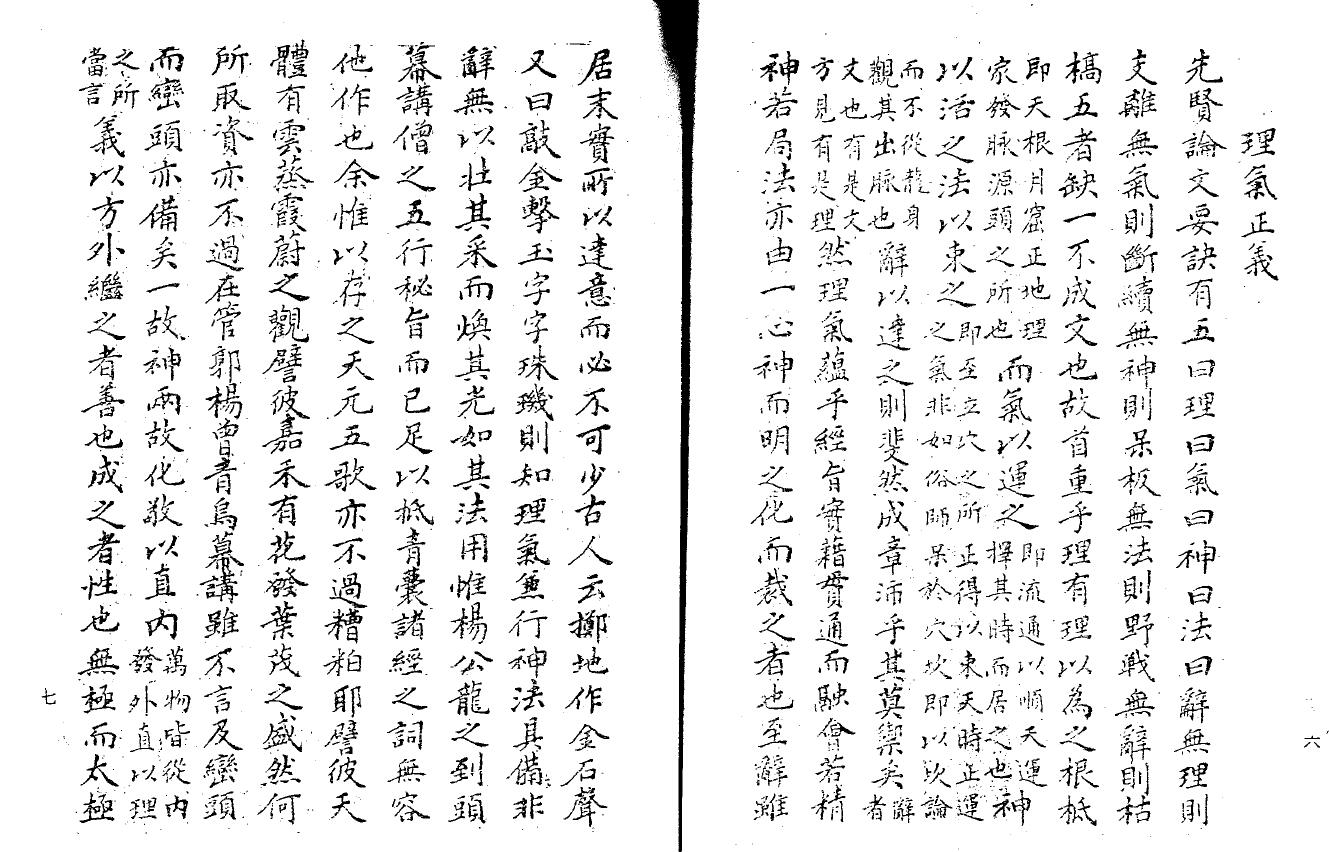 理氣正義
先賢論文要訣有五曰理曰氣曰神曰法曰辭無理則
支離無氣則斷續無神則呆板無法則野戰無辭則枯
槁五者缺一不成文也故首重乎理有理以為之根柢
即天根月窟正地理家發脉源頭之所也而氣以運之即流通以順天運擇其時而居之也神
以活之法以束之即至立穴之所正得以束天時正運之氣非如俗師呆於穴坎即以坎論
而不從龍身觀其出脉也辭以達之則斐然成章沛乎其莫禦矣辭者
文也有是文方見有是理然理氣蘊乎經旨實藉貫通而融會若精
神若局法亦由一心神而明之化而裁之者也至辭雖
六
居末實所以達意而必不可少古人云擲地作金石聲
又曰敲金擊玉字字珠璣則知理氣兼行神法具備非
辭無以壯其采而煥其光如其法用惟楊公龍之到頭
幕講僧之五行秘旨而已足以抵青囊諸經之詞無容
他作也余惟以存之天元五歌亦不過糟粕耶譬彼天
體有雲蒸霞蔚之觀譬彼嘉禾有花發葉茂之盛然何
所取資亦不過在管郭楊曾青烏幕講雖不言及巒頭
而巒頭亦備矣一故神兩故化敬以直內萬物皆從內發外直以理
之所當言義以方外繼之者善也成之者性也無極而太極
七